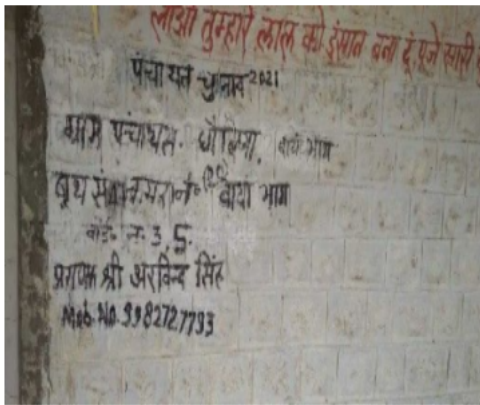 लाओ तुम्हारे लाल को इंसान बना दूं, पूजे सारी
पंचायत चुनाव 2021
ग्राम पंचायत. बायां भाग
बूथ बायां भाग
वार्ड नं 3, 5.
प्रगणक श्री अरविन्द सिंह
Mob. No. 9982727793